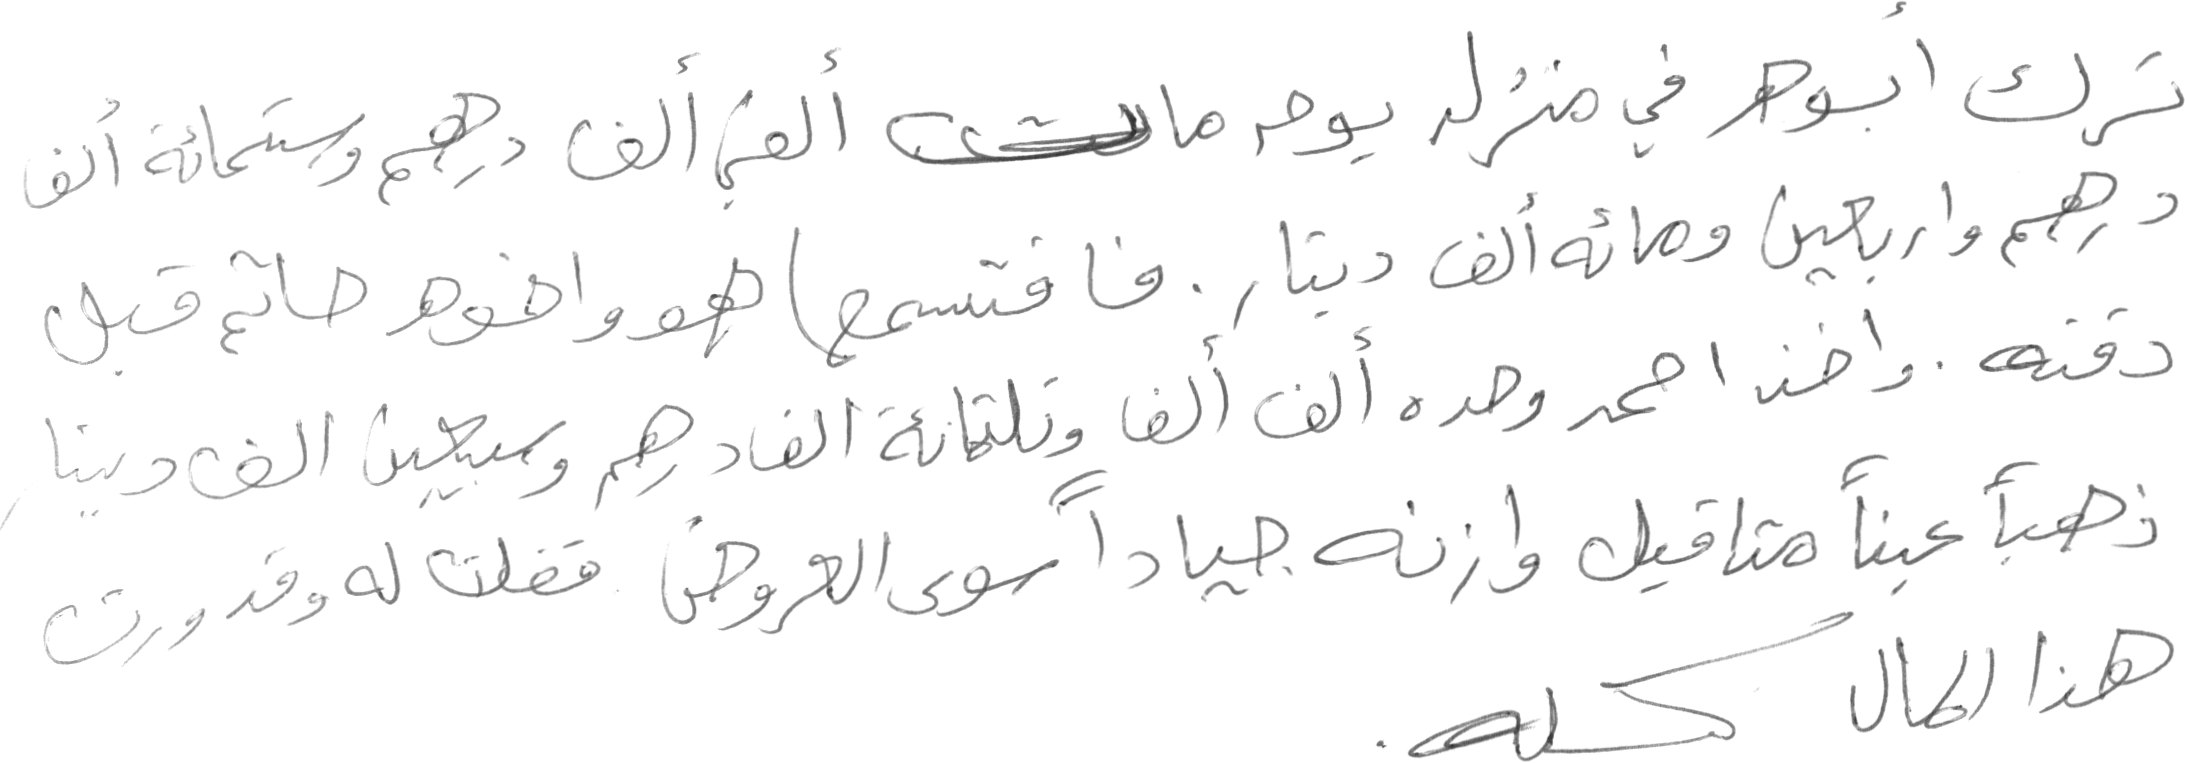 ترك أبوه في منزله يوم مات ألفي ألف درهم وستمائة ألف
درهم واربعين ومائه ألف دينار. فاقتسمها هو واخوه حاتم قبل
دفنه. وأخذ احمد وحده ألف ألف وثلثمائة الف درهم وسبعين الف دينار
ذهباً عيناً مثاقيل وازنه جياداً سوى العروض. فقلت له وقد ورث
هذا المال كله.